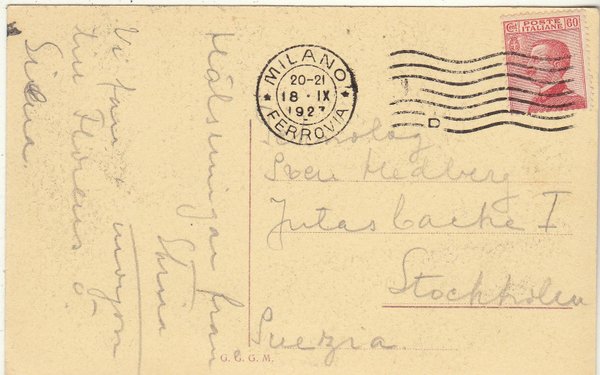 Hälsningar från
Stina
Vi fara i morgon
till Florens o
Siena.
MILANO
20-21
18 · IX
1927
FERROVIA
D
POSTE
ITALIANE
60
Sven Hedberg
Jutas backe 1
Stockholm
Suezia.
G. G. G. M.